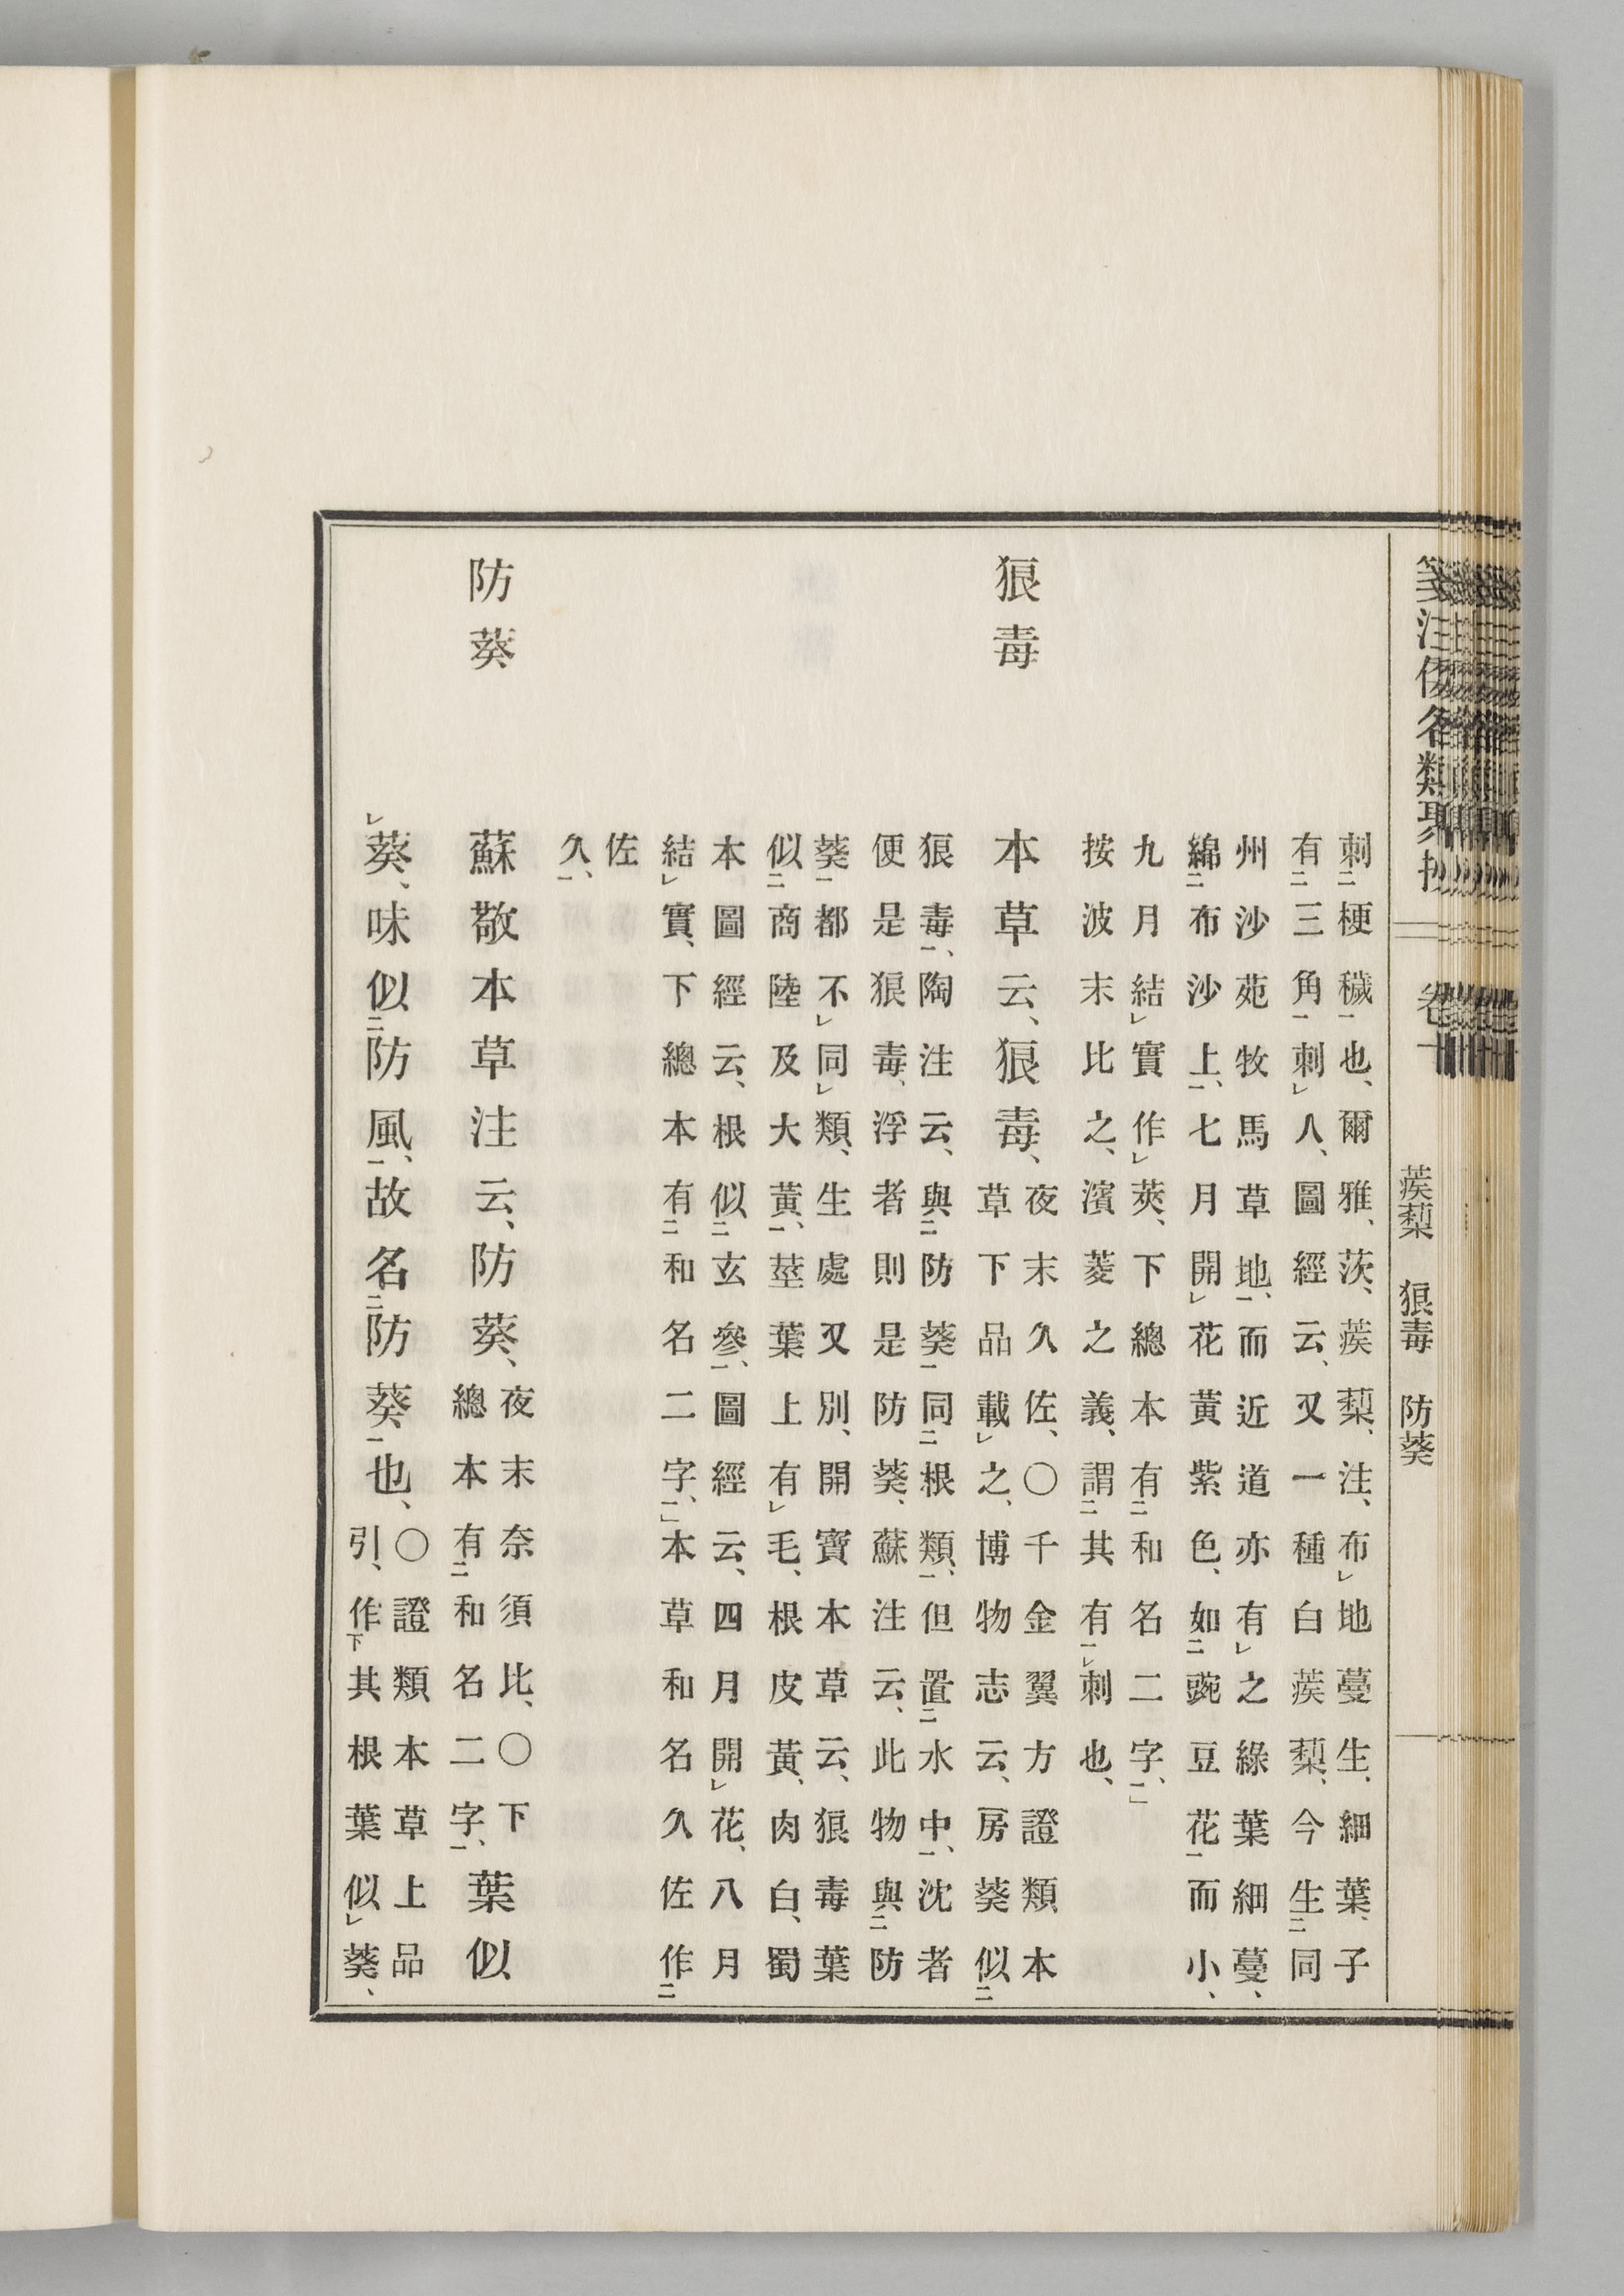 箋注倭名類聚抄 卷十 蒺䔧 狼毒 防葵
刺梗穢也、爾雅、茨、蒺䔧、注、布地蔓生、細葉、子
有三角刺人、圖經云、又一種白蒺䔧、今生同
州沙苑牧馬草地、而近道亦有之綠葉細蔓、
綿布沙上、七月開花黃紫色、如豌豆花而小、
九月結實作莢、下總本有和名二字、
按波末比之、濱菱之義、謂其有刺也、
狼毒
本草云、狼毒、
夜末久佐、〇千金翼方證類本
草下品載之、博物志云、房葵似
狼毒、陶注云、與防葵同根類、但置水中、沈者
便是狼毒、浮者則是防葵、蘇注云、此物與防
葵都不同類、生處又別、開寶本草云、狼毒葉
似商陸及大黃、莖葉上有毛、根皮黃、肉白、蜀
本圖經云、根似玄參、圖經云、四月開花、八月
結實、下總本有和名二字、本草和名久佐作
佐
久、
防葵
蘇敬本草注云、防葵、
夜末奈須比、〇下
總本有和名二字、
葉似
葵、味似防風、故名防葵也、
〇證類本草上品
引、作其根葉似葵、